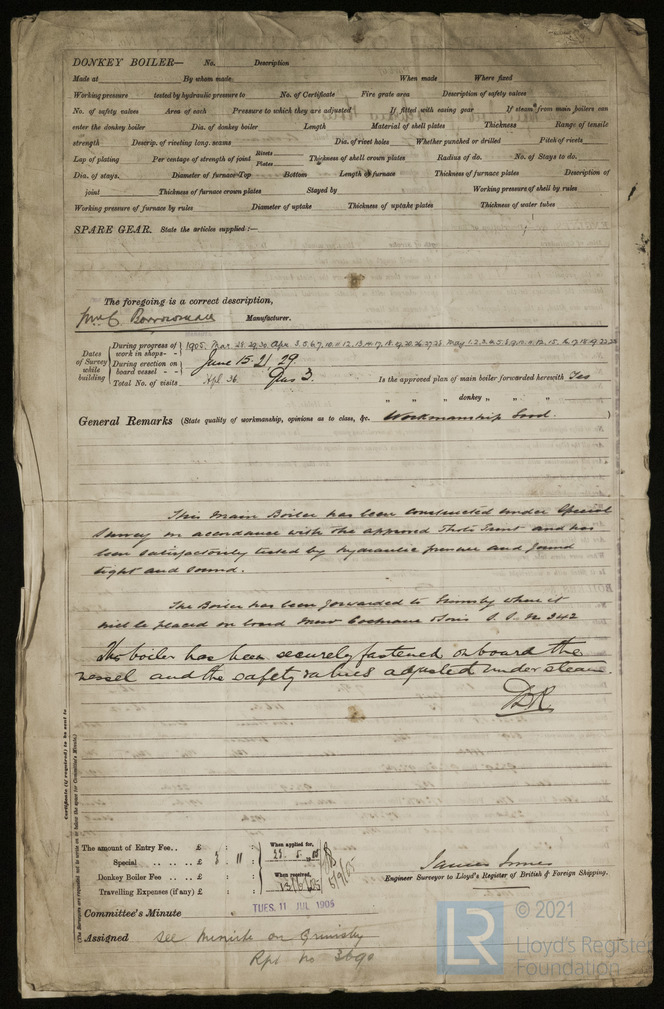 DONKEY BOILER— No. Description
Made at By whom made When made Where fixed
Working pressure tested by hydraulic pressure to No. of Certificate Fire grate area Description of safety valves
No. of safety valves Area of each Pressure to which they are adjusted If fitted with easing gear If steam from main boilers can
enter the donkey boiler Dia. of donkey boiler Length Material of shell plates Thickness Range of tensile
strength Descrip. of riveting long. seams Dia. of rivet holes Whether punched or drilled Pitch of rivets
Lap of plating Per centage of strength of joint Rivets Plates Thickness of shell crown plates Radius of do. No. of Stays to do.
Dia. of stays. Diameter of furnace Top Bottom Length of furnace Thickness of furnace plates Description of
joint Thickness of furnace crown plates Stayed by Working pressure of shell by rules
Working pressure of furnace by rules Diameter of uptake Thickness of uptake plates Thickness of water tubes
SPARE GEAR. State the articles supplied:—
The foregoing is a correct description,
Manufacturer.
Dates of Survey while building
During progress of work in shops - - 1905. Mar.
During erection on board vessel - - June 15. 21. 29
Total No. of visits
Is the approved plan of main boiler forwarded herewith Yes
" " " donkey " " "
General Remarks (State quality of workmanship, opinions as to class, &c. Workmanship Good.)
This Main Boiler has been constructed under Special
Survey in accordance with the approved Photo Print and has
been satisfactorily tested by hydraulic pressure and found
tight and sound.
The Boiler has been forwarded to Grimsby where it
will be placed on board Messrs Cochrane & Sons S. S. No 342
This boiler has been securely fastened on board the
vessel and the safety valves adjusted under steam.
Certificate (if required) to be sent to
(The Surveyors are requested not to write on or below the space for Committee's Minute.)
The amount of Entry Fee.. £ : : When applied for,
Special .. .. .. £ 5 : 11 :
Donkey Boiler Fee .. .. £ : : When received,
Travelling Expenses (if any) £ : : 13/6/05 5/9/05
James
Engineer Surveyor to Lloyd's Register of British & Foreign Shipping.
Committee's Minute TUES. 11 JUL 1905
Assigned See minute on Grimsby
Rpt no 3690
LR
© 2021
Lloyd's Register
Foundation